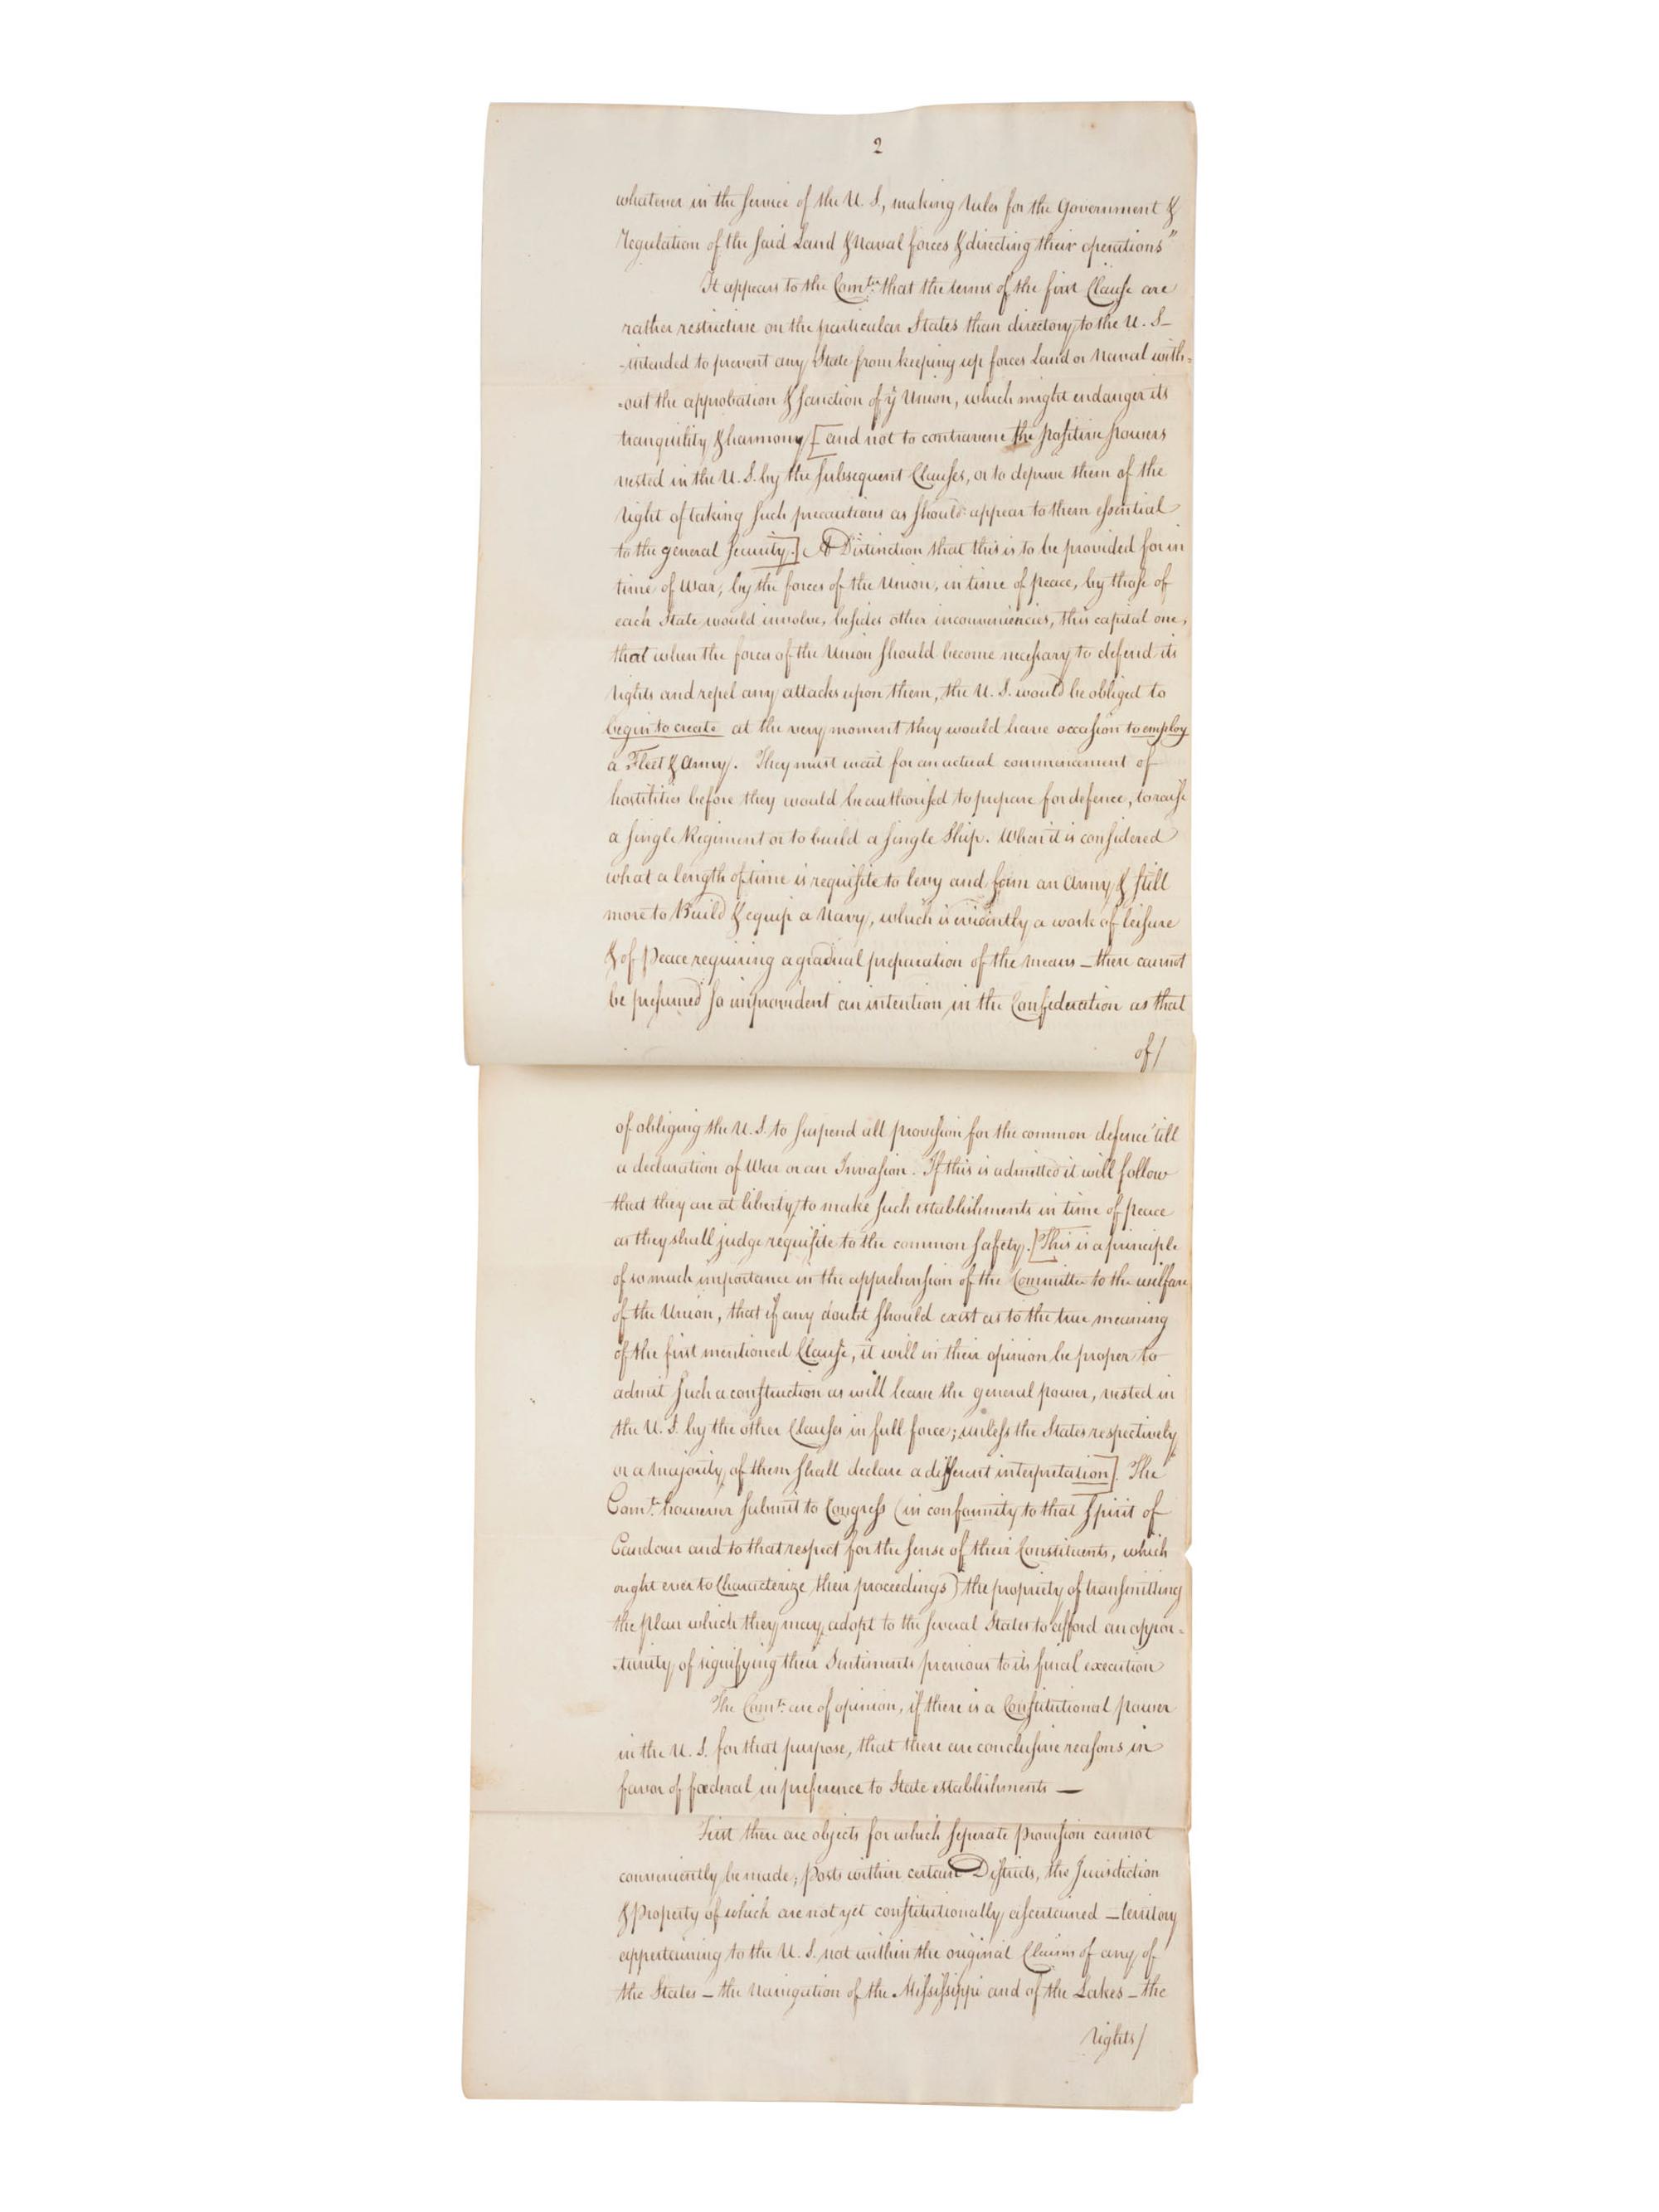 2
whatever in the service of the U S, making rules for the Government &
regulation of the said Land & Naval forces & directing their operations"
It appears to the Comtee. that the terms of the first Clause are
rather restrictive on the particular States than directory to the U. S—
-intended to prevent any State from keeping up forces Land or Naval with=
=out the approbation & sanction of ye Union, which might endanger its
tranquility & harmony [and not to contravene the positive powers
vested in the U. S. by the subsequent Clauses, or to deprive them of the
right of taking such precautions as should appear to them essential
to the general security.] A Distinction that this is to be provided for in
time of War, by the forces of the Union, in time of peace, by those of
each State would involve, besides other inconveniencies, this capital one,
that when the forces of the Union should become necessary to defend its
rights and repel any attacks upon them, the U. S. would be obliged to
begin to create at the very moment they would have occasion to employ
a Fleet & Army. They must wait for an actual commencement of
hostilities before they would be authorised to prepare for defence, to raise
a single Regiment or to build a single Ship. When it is considered
what a length of time is requisite to levy and form an Army & still
more to Build & equip a Navy, which is evidently a work of leisure
& of Peace requiring a gradual preparation of the means — there cannot
be presumed so improvident an intention in the Confederation as that
of/
of obliging the U. S. to suspend all provision for the common defence 'till
a declaration of War or an Invasion. If this is admitted it will follow
that they are at liberty to make such establishments in time of peace
as they shall judge requisite to the common safety. [This is a principle
of so much importance in the apprehension of the Committee to the welfare
of the Union, that if any doubt should exist as to the true meaning
of the first mentioned Clause, it will in their opinion be proper to
admit such a construction as will leave the general power, vested in
the U. S. by the other Clauses in full force; unless the States respectively
or a majority of them shall declare a different interpretation]. The
Comte. however submit to Congress (in conformity to that spirit of
Candour and to that respect for the sense of their Constituents, which
ought ever to Characterize their proceedings) the propriety of transmitting
the plan which they may adopt to the several States to afford an oppor=
=tunity of signifying their Sentiments previous to its final execution
The Comte. are of opinion, if there is a Constitutional power
in the U. S. for that purpose, that there are conclusive reasons in
favor of fœderal in preference to State establishments —
First there are objects for which seperate provision cannot
conveniently be made; posts within certain Districts, the Jurisdiction
& property of which are not yet constitutionally ascertained — territory
appertaining to the U. S. not within the original Claims of any of
the States — the Navigation of the Mississippi and of the Lakes — the
rights/